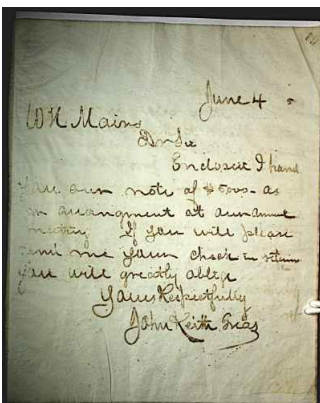 June 4
W H Mains
Dr Sir
Enclosed I hand
you our note of $5000- as
an arrangment at our annual
meeting If you will please
send me your check in return
you will greatly oblige
Yours Respectfully
John Keith Treas